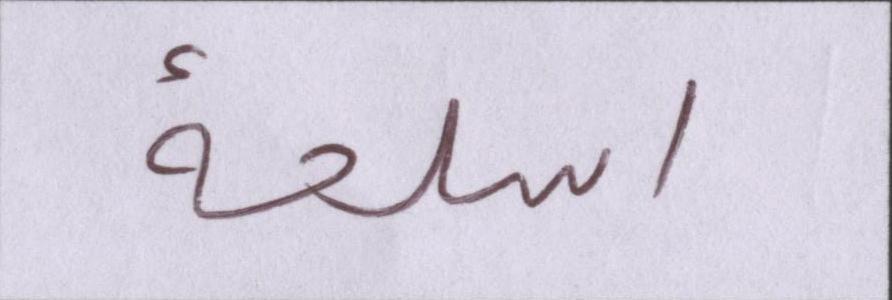 اسلحهٔ